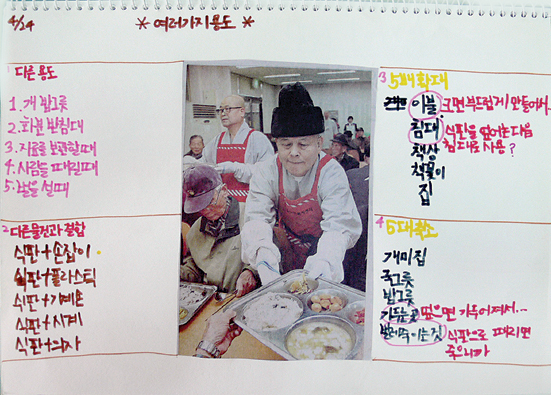 4/24
* 여러가지 용도 *
1 다른 용도
1. 개 밥그릇
2. 화분 받침대
3. 자료를 보관할때
4. 사람을 때릴때
5. 벌을 설때
2 다른물건과 결합
식판+손잡이
식판+플라스틱
식판+기계손
식판+시계
식판+의자
3 5배 확대
이불 크면 부드럽게 만들어서..
침대 식판을 엎어논 다음 침대로 사용?
책상
책꽂이
집
4 5배 축소
개미집
국그릇
밥그릇
가두는 곳 덮으면 가두어져서...
벌레죽이는것 식판으로 때리면 죽으니까